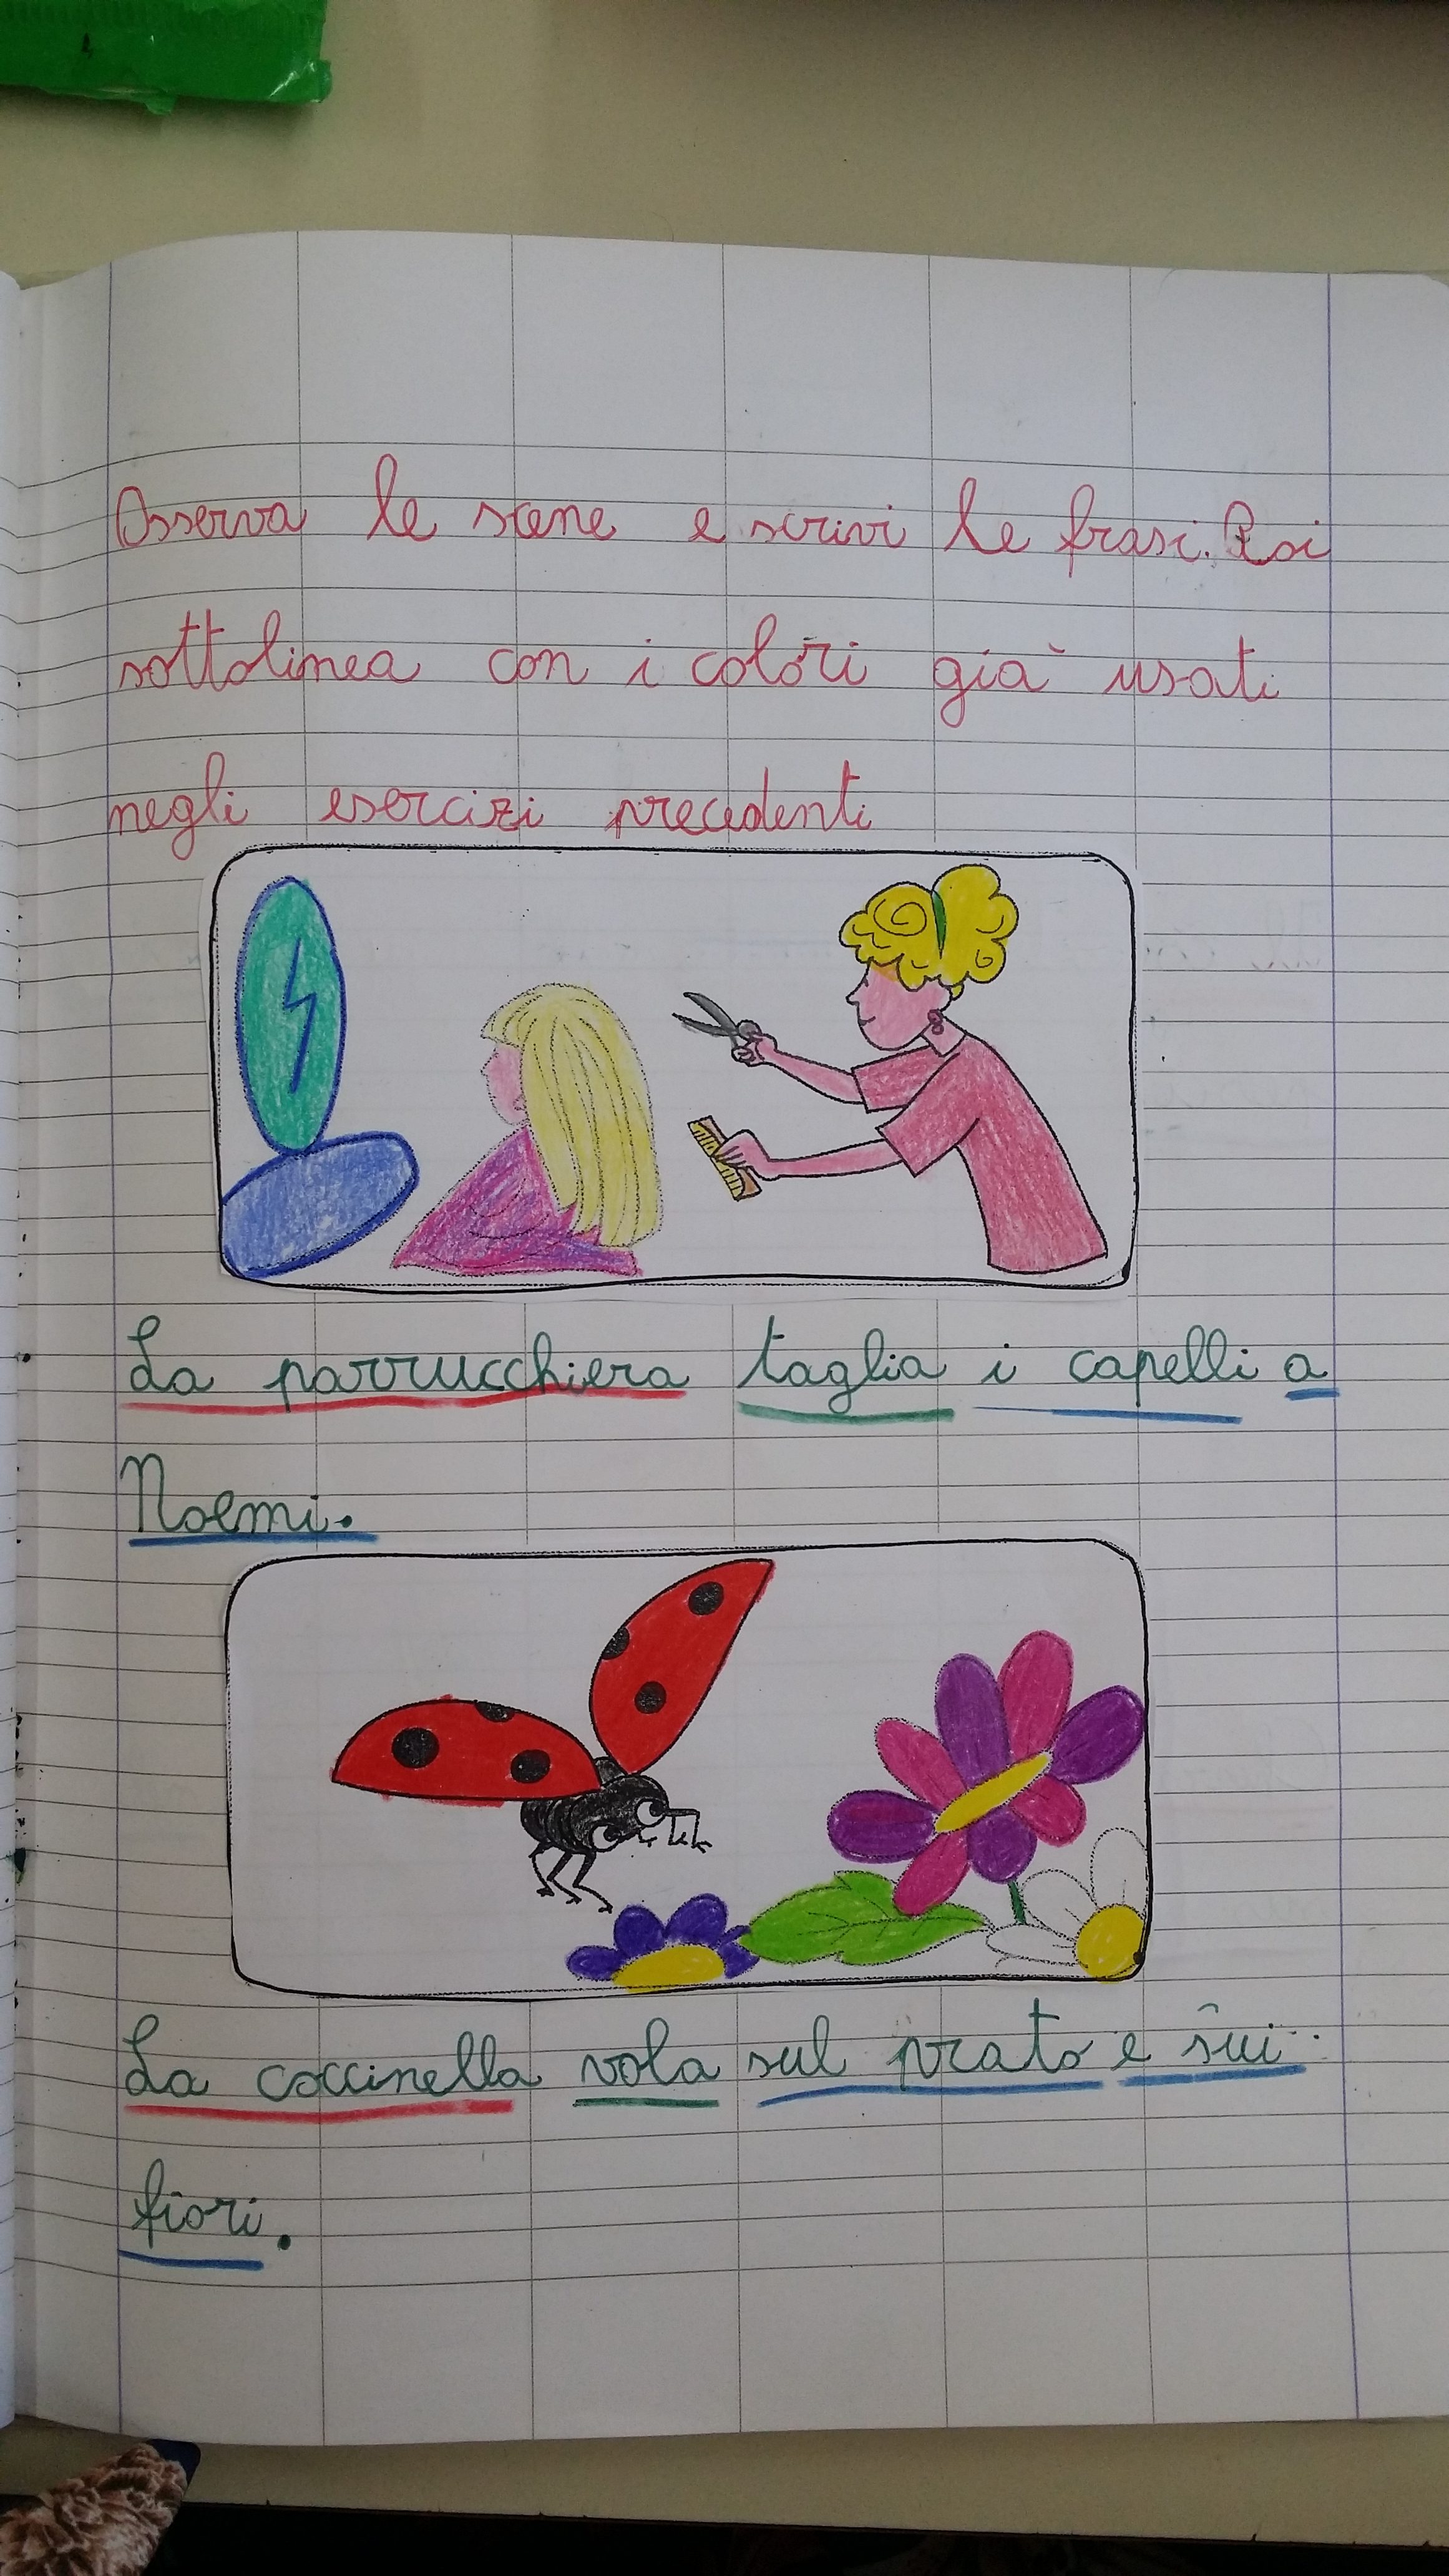 Osserva le scene e scrivi le frasi. Poi
sottolinea con i colori già usati
negli esercizi precedenti
La parrucchiera taglia i capelli a
Noemi.
La coccinella vola sul prato e sui
fiori.